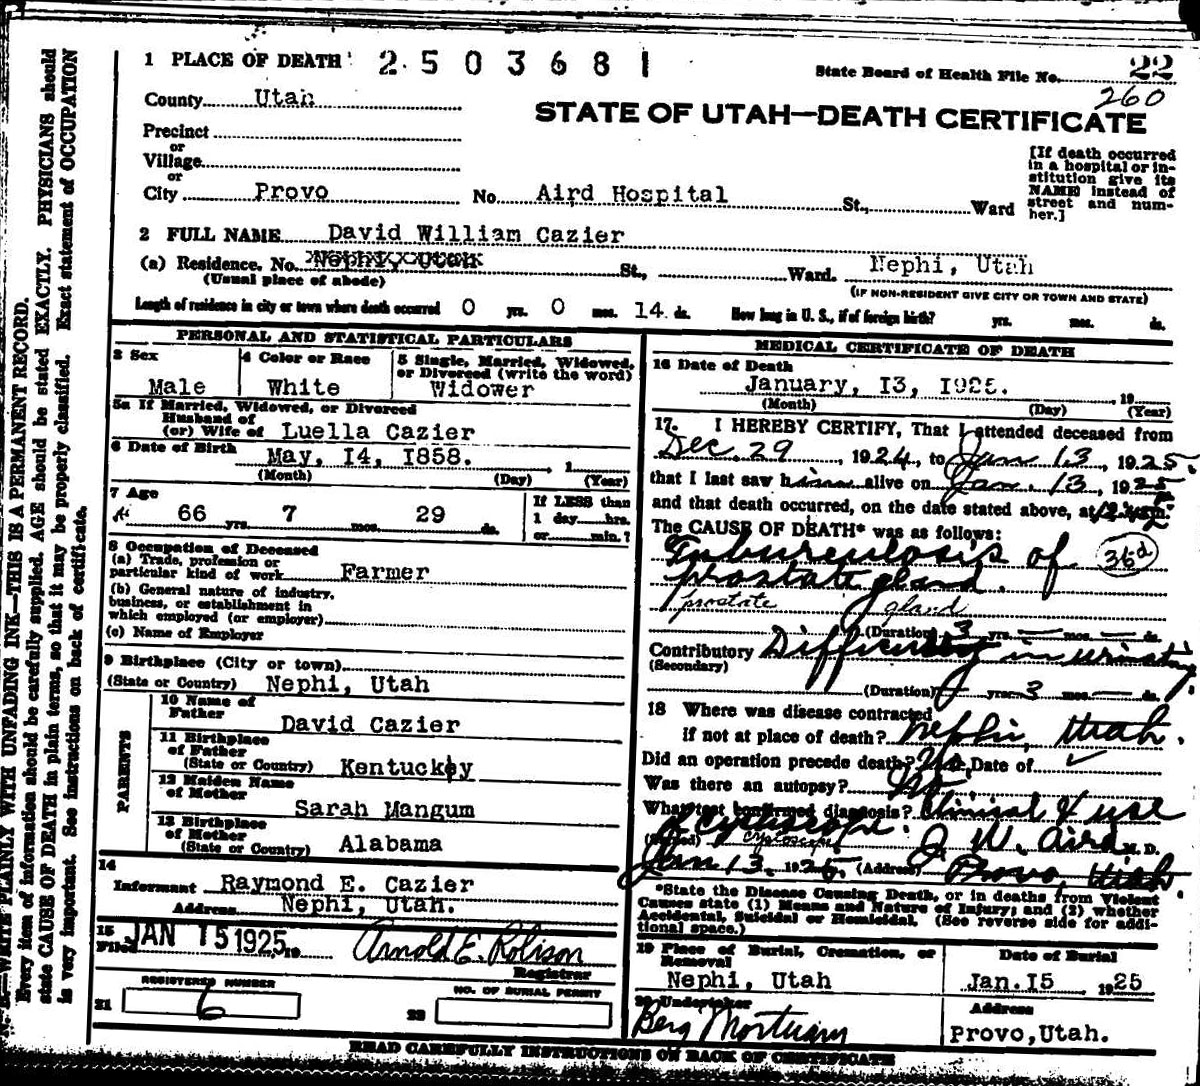 1 PLACE OF DEATH 2503681
State Board of Health File No. 22
260
County Utah
STATE OF UTAH—DEATH CERTIFICATE
Precinct
or
Village
or
City Provo No. Aird Hospital St., Ward
[If death occurred in a hospital or institution give its NAME instead of street and number.]
2 FULL NAME David William Cazier
(a) Residence. No. Nephi, Utah St., Ward. Nephi, Utah
(Usual place of abode) (IF NON-RESIDENT GIVE CITY OR TOWN AND STATE)
Length of residence in city or town where death occurred 0 yrs. 0 mos. 14 ds. How long in U. S., if of foreign birth? yrs. mos. ds.
PERSONAL AND STATISTICAL PARTICULARS
3 Sex Male
4 Color or Race White
5 Single, Married, Widowed, or Divorced (write the word) Widower
5a If Married, Widowed, or Divorced
Husband of
(or) Wife of Luella Cazier
6 Date of Birth May, 14, 1858. , 1
(Month) (Day) (Year)
7 Age
66 yrs. 7 mos. 29 ds.
If LESS than
1 day hrs.
or min.?
8 Occupation of Deceased
(a) Trade, profession or
particular kind of work Farmer
(b) General nature of industry,
business, or establishment in
which employed (or employer)
(c) Name of Employer
9 Birthplace (City or town)
(State or Country) Nephi, Utah
PARENTS
10 Name of
Father David Cazier
11 Birthplace
of Father
(State or Country) Kentuckey
12 Maiden Name
of Mother Sarah Mangum
13 Birthplace
of Mother
(State or Country) Alabama
14
Informant Raymond E. Cazier
Address Nephi, Utah.
15
Filed JAN 15 1925 19 Arnold E. Robison
Registrar
REGISTERED NUMBER
21 6
NO. OF BURIAL PERMIT
22
MEDICAL CERTIFICATE OF DEATH
16 Date of Death
January, 13, 1925. , 19
(Month) (Day) (Year)
17. I HEREBY CERTIFY, That I attended deceased from
Dec. 29, 1924, to Jan 13, 1925.
that I last saw him alive on Jan. 13, 1925
and that death occurred, on the date stated above, at
The CAUSE OF DEATH* was as follows:
Tuburculosis of 36d
prostate gland.
prostate gland
(Duration) 3 yrs. — mos. — ds.
Contributory Difficulty in urinating
(Secondary)
(Duration) yrs. 3 mos. — ds.
18 Where was disease contracted
if not at place of death? Nephi, Utah.
Did an operation precede death? No. Date of
Was there an autopsy? No.
What test confirmed diagnosis? Clinical & use
of Cystoscope.
(Signed) J. W. Aird M. D.
Jan 13. 1925. (Address) Provo, Utah.
*State the Disease Causing Death, or in deaths from Violent
Causes state (1) Means and Nature of Injury; and (2) whether
Accidental, Suicidal or Homicidal. (See reverse side for addi-
tional space.)
19 Place of Burial, Cremation, or
Removal
Nephi, Utah
Date of Burial
Jan. 15 1925
20 Undertaker
Berg Mortuary
Address
Provo, Utah.
READ CAREFULLY INSTRUCTIONS ON BACK OF CERTIFICATE
N. B.—WRITE PLAINLY WITH UNFADING INK—THIS IS A PERMANENT RECORD.
Every item of information should be carefully supplied. AGE should be stated EXACTLY. PHYSICIANS should
state CAUSE OF DEATH in plain terms, so that it may be properly classified. Exact statement of OCCUPATION
is very important. See instructions on back of certificate.